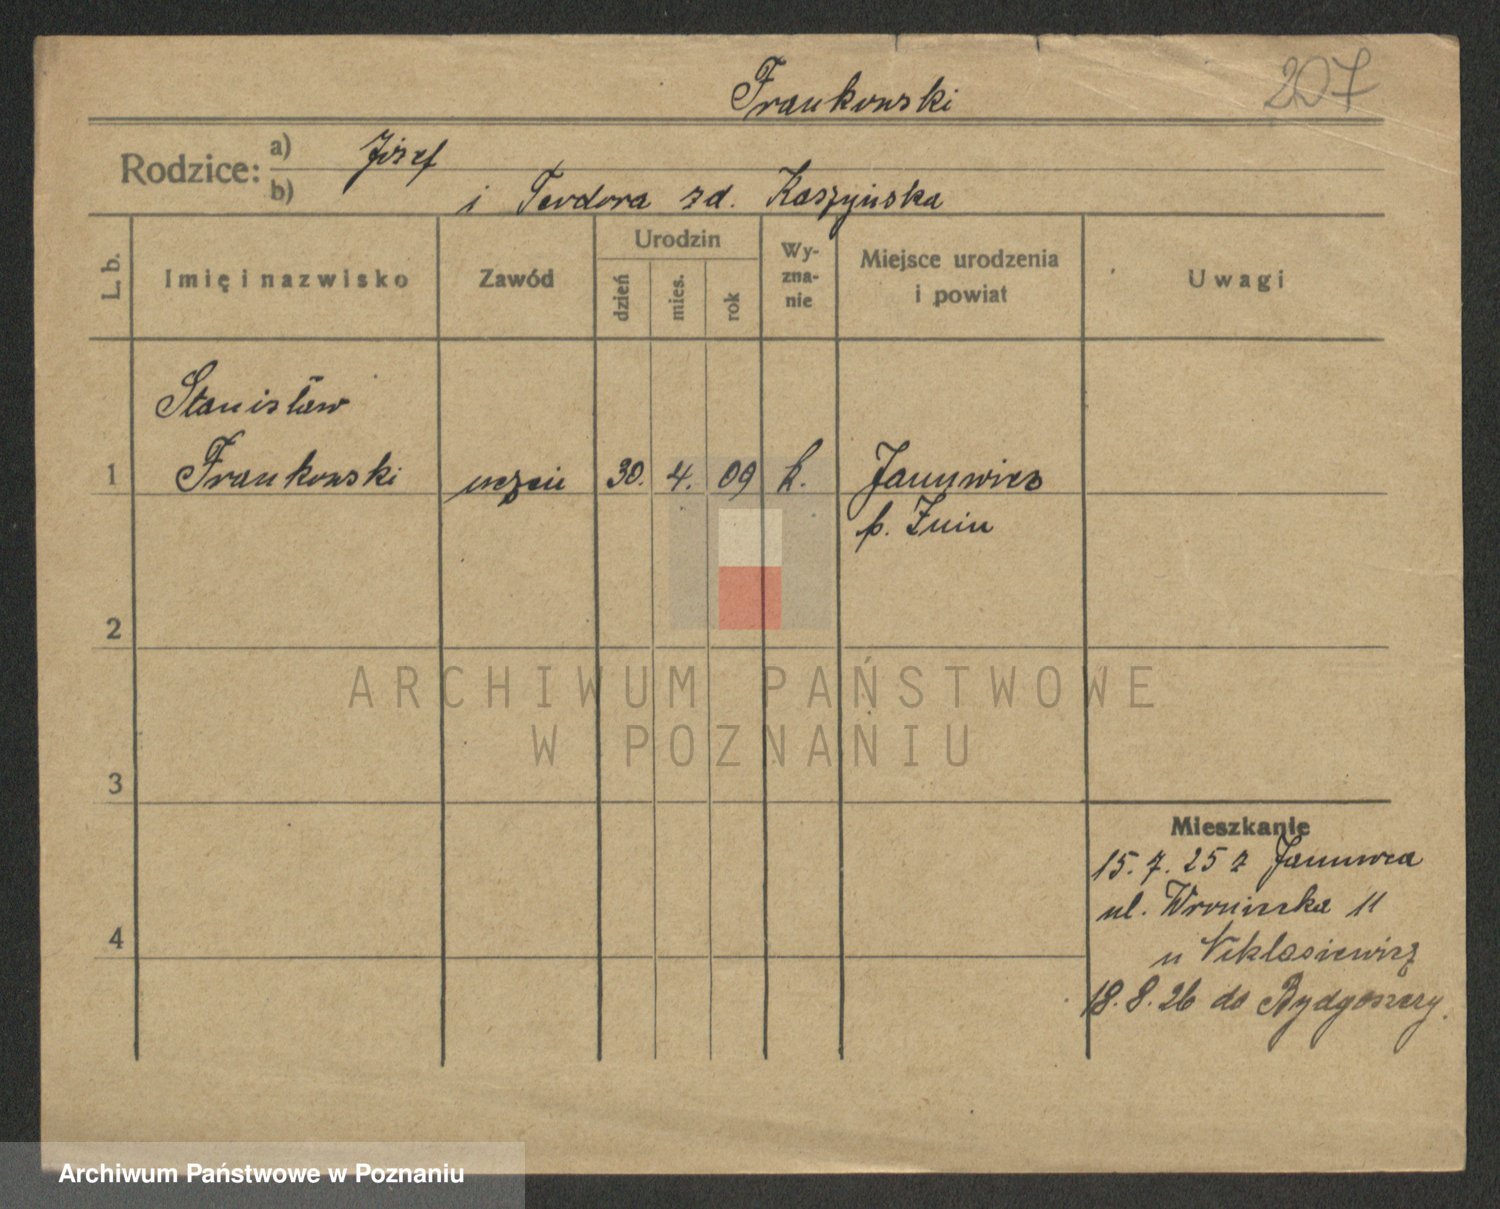 Frankowski
207
Rodzice:
a) Józef
b) i Teodora zd. Kaszyńska
L. b.
Imię i nazwisko
Zawód
Urodzin
dzień
mies.
rok
Wy-
zna-
nie
Miejsce urodzenia
i powiat
Uwagi
Stanisław
1 Frankowski uczeń 30. 4. 09 k. Janowiec
p. Żnin
2
3
4
Mieszkanie
15. 7. 25 z Janowca
ul. Wroniecka 11
u
18. 8. 26 do Bydgoszczy.
ARCHIWUM PAŃSTWOWE
W POZNANIU
Archiwum Państwowe w Poznaniu